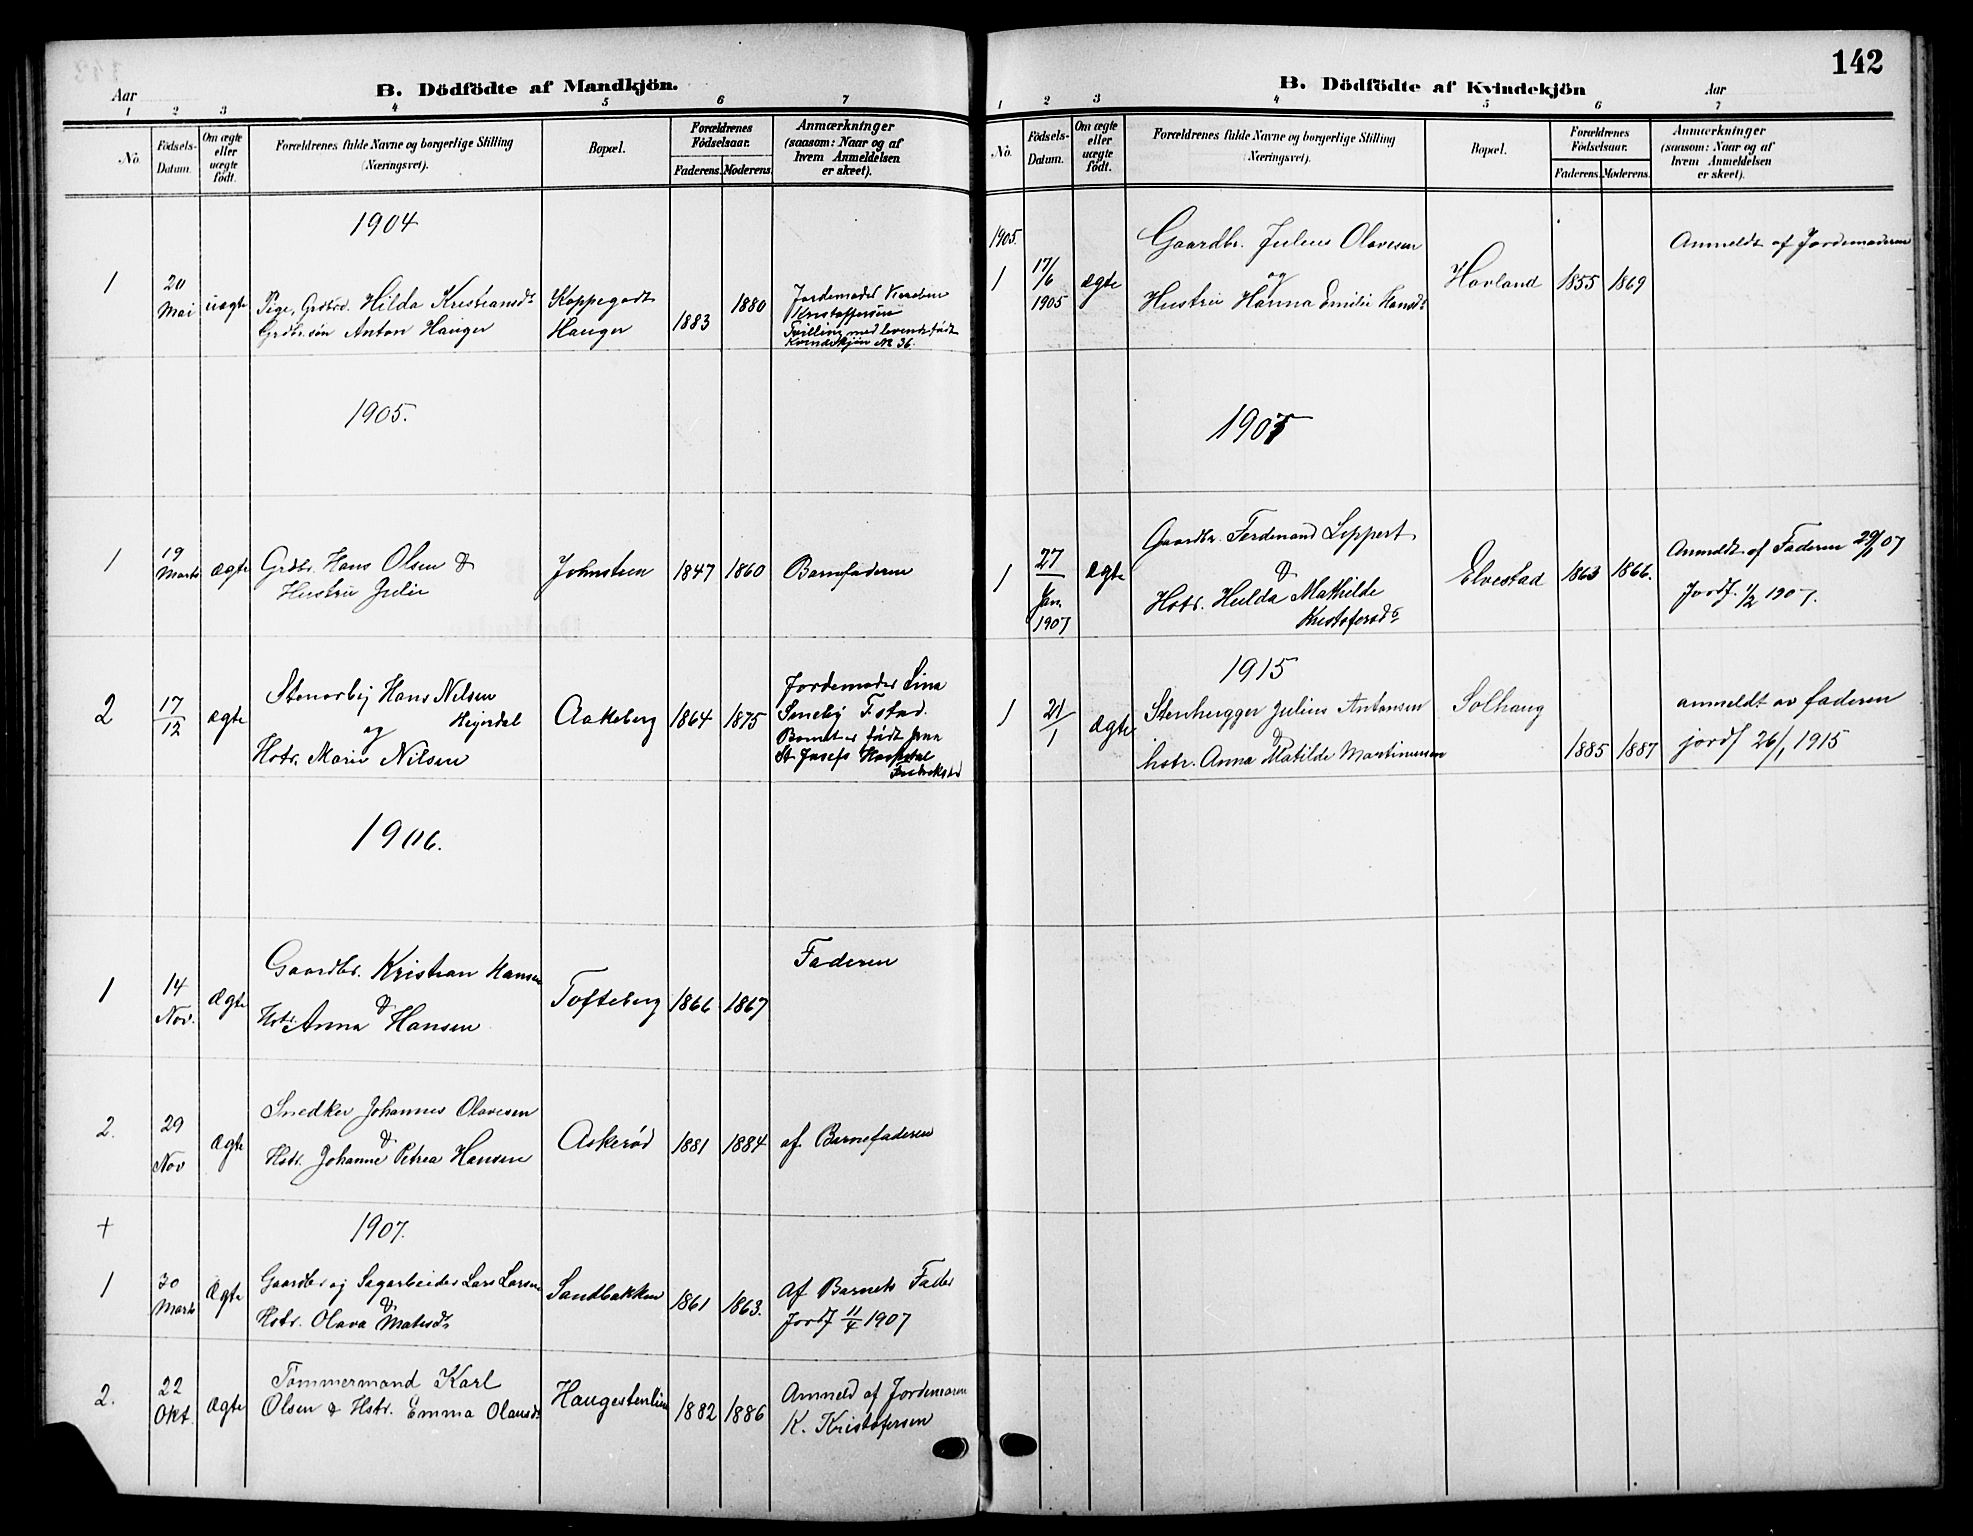 Aar
B. Dödfödte af Mandkjön.
1 2 3 4 5 6 7
No.
Födsels-
Datum.
Om ægte
eller
uægte
födt.
Forældrenes fulde Navne og borgerlige Stilling
(Næringsvei).
Bopæl.
Forældrenes
Födselsaar.
Faderens. Moderens.
Anmærkninger
(saasom: Naar og af
hvem Anmeldelsen
er skeet).
1904
1
20
Mai
uægte
Pige, Grdbrd. Hilda Kristiansdt
Grdbrsøn Anton Hauger
Koppegodt
Hauger
1883
1880
Jordemoder
Kristoffersen
Tvilling med levende født
Kvindekjøn No 36.
1905.
1
19
Marts
ægte
Grdbr. Hans Olsen &
Hustru Julie
Johnsteen
1847
1860
Barnefaderen
2
17
12
ægte
Stenarbej Hans Nilsen
Heyerdal
og
Hstr. Marie Nilsen
Aakeberg
1864
1875
Jordemoder Lina
Seneby F.stad.
Barnet er født paa
St. Josefs Hospital
Fredrikstad
1906.
1
14
Nov.
Ægte
Gaardbr. Kristian Hansen
&
Hstr. Anna Hansen
Tofteberg
1866
1867
Faderen
2.
29
Nov
Ægte
Snedker Johannes Olavesen
&
Hstr. Johanne Petrea Hansen
Askerød
1881
1884
af Barnefaderen
+
1907.
1
30
Marts
Ægte
Gaardbr og Sagarbeider Lars Larsen
&
Hstr. Olava Matisdt
Sandbakken
1861
1863.
Af Barnets Fader
Jordf 11/4 1907
2.
22
Okt.
Ægte
Tømmermand Karl
Olsen & Hstr. Emma Olausdt
Haugestenlien
1882
1886
Anmeld af Jordemoren
K. Kristofersen
142
B. Dödfödte af Kvindekjön
Aar
1 2 3 4 5 6 7
No.
Födsels-
Datum.
Om ægte
eller
uægte
födt.
Forældrenes fulde Navne og borgerlige Stilling
(Næringsvei).
Bopæl.
Forældrenes
Födselsaar.
Faderens. Moderens.
Anmærkninger
(saasom: Naar og af
hvem Anmeldelsen
er skeet).
1905.
1
17/6
1905
Ægte
Gaardbr. Julius Olavesen
og
Hustru Hanna Emilie Hansdt
Hovland
1855
1869
Anmeldt af Jordemoderen
1907
1
27
Jan.
1907
Ægte
Gaardbr. Ferdinand Leppert
&
Hstr. Hulda Mathilde
Kristofersdt
Elvestad
1863
1866.
Anmeldt af Faderen 29/1 07
Jordf. 1/2 1907.
1915
1
21/1
Ægte
Stenhugger Julius Antonsen
&
hstr. Anna Matilde Martinussen
Solhaug
1885
1887
anmeldt av faderen
jordf 26/1 1915